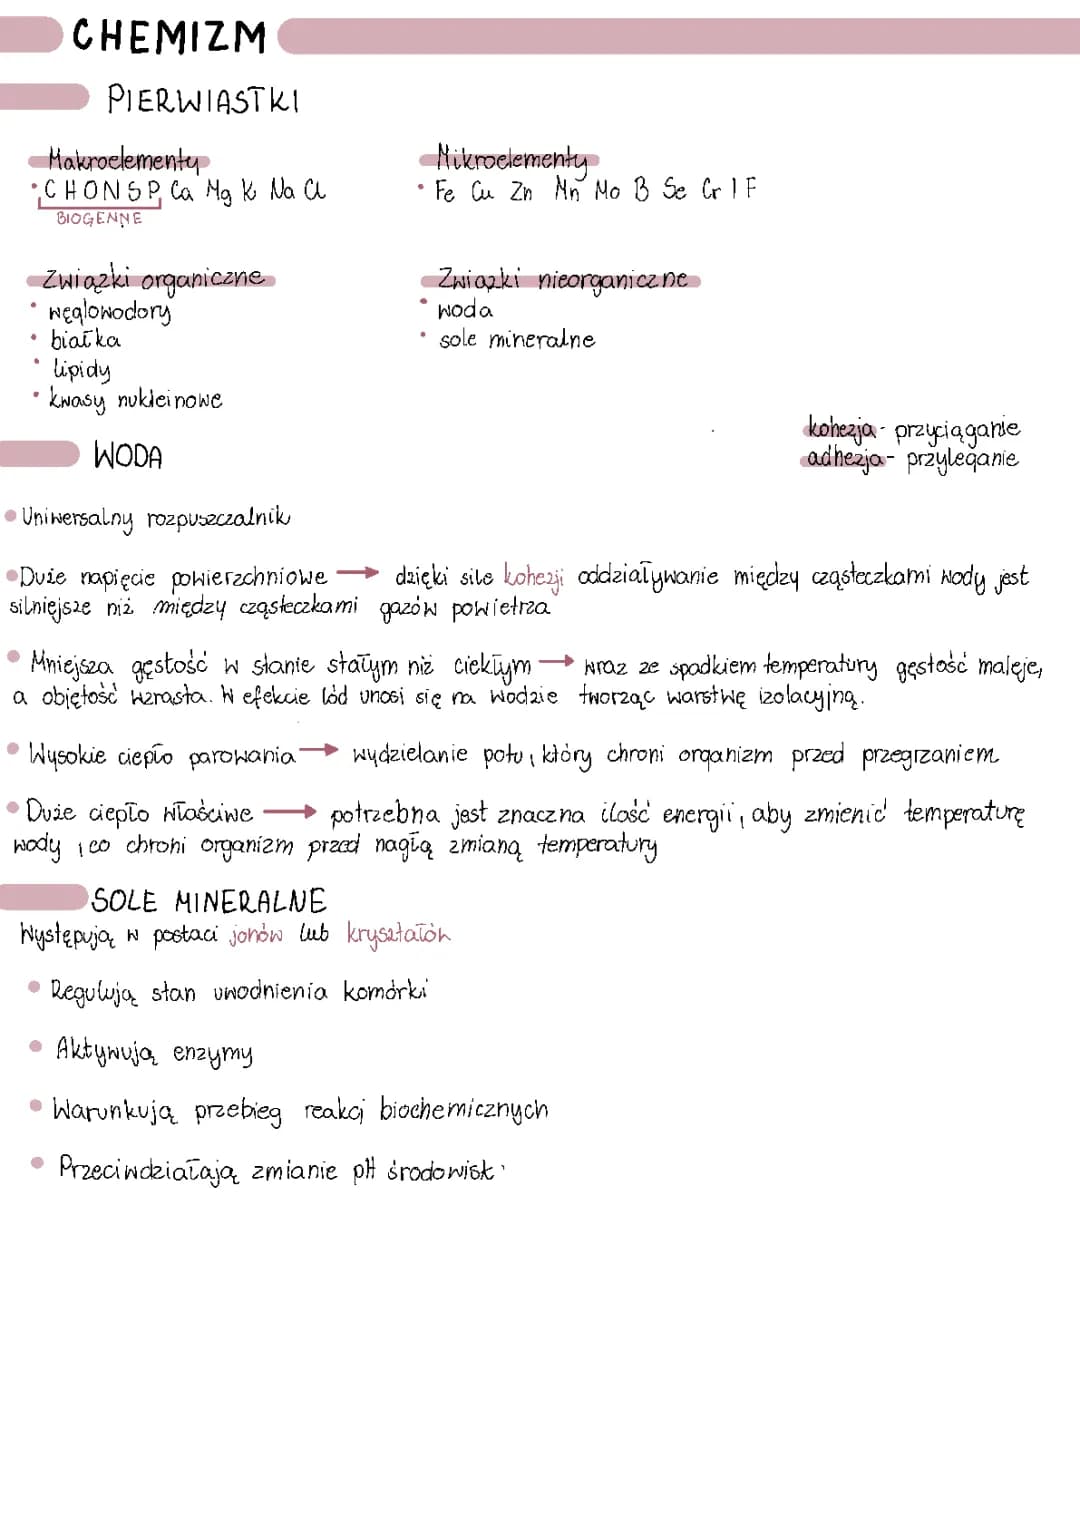 CHEMIZM
PIERWIASTKI
Makroelementy
• C H O N S P, Ca Mg K Na Cl
BIOGENNE
Mikroelementy
• Fe Cu Zn Mn Mo B Se Cr I F
Związki organiczne
• węglowodory
• białka
• lipidy
• kwasy nukleinowe
Związki nieorganiczne
• woda
• sole mineralne
kohezja - przyciąganie
adhezja - przyleganie
WODA
• Uniwersalny rozpuszczalnik
• Duże napięcie powierzchniowe → dzięki sile kohezji oddziaływanie między cząsteczkami wody jest
silniejsze niż między cząsteczkami gazów powietrza
• Mniejsza gęstość w stanie stałym niż ciekłym → wraz ze spadkiem temperatury gęstość maleje,
a objętość wzrasta. W efekcie lód unosi się na wodzie tworząc warstwę izolacyjną.
• Wysokie ciepło parowania → wydzielanie potu, który chroni organizm przed przegrzaniem
• Duże ciepło właściwe → potrzebna jest znaczna ilość energii, aby zmienić temperaturę
wody, co chroni organizm przed nagłą zmianą temperatury
SOLE MINERALNE
Występują w postaci jonów lub kryształów
• Regulują stan uwodnienia komórki
• Aktywują enzymy
• Warunkują przebieg reakcj biochemicznych
• Przeciwdziałają zmianie pH środowisk